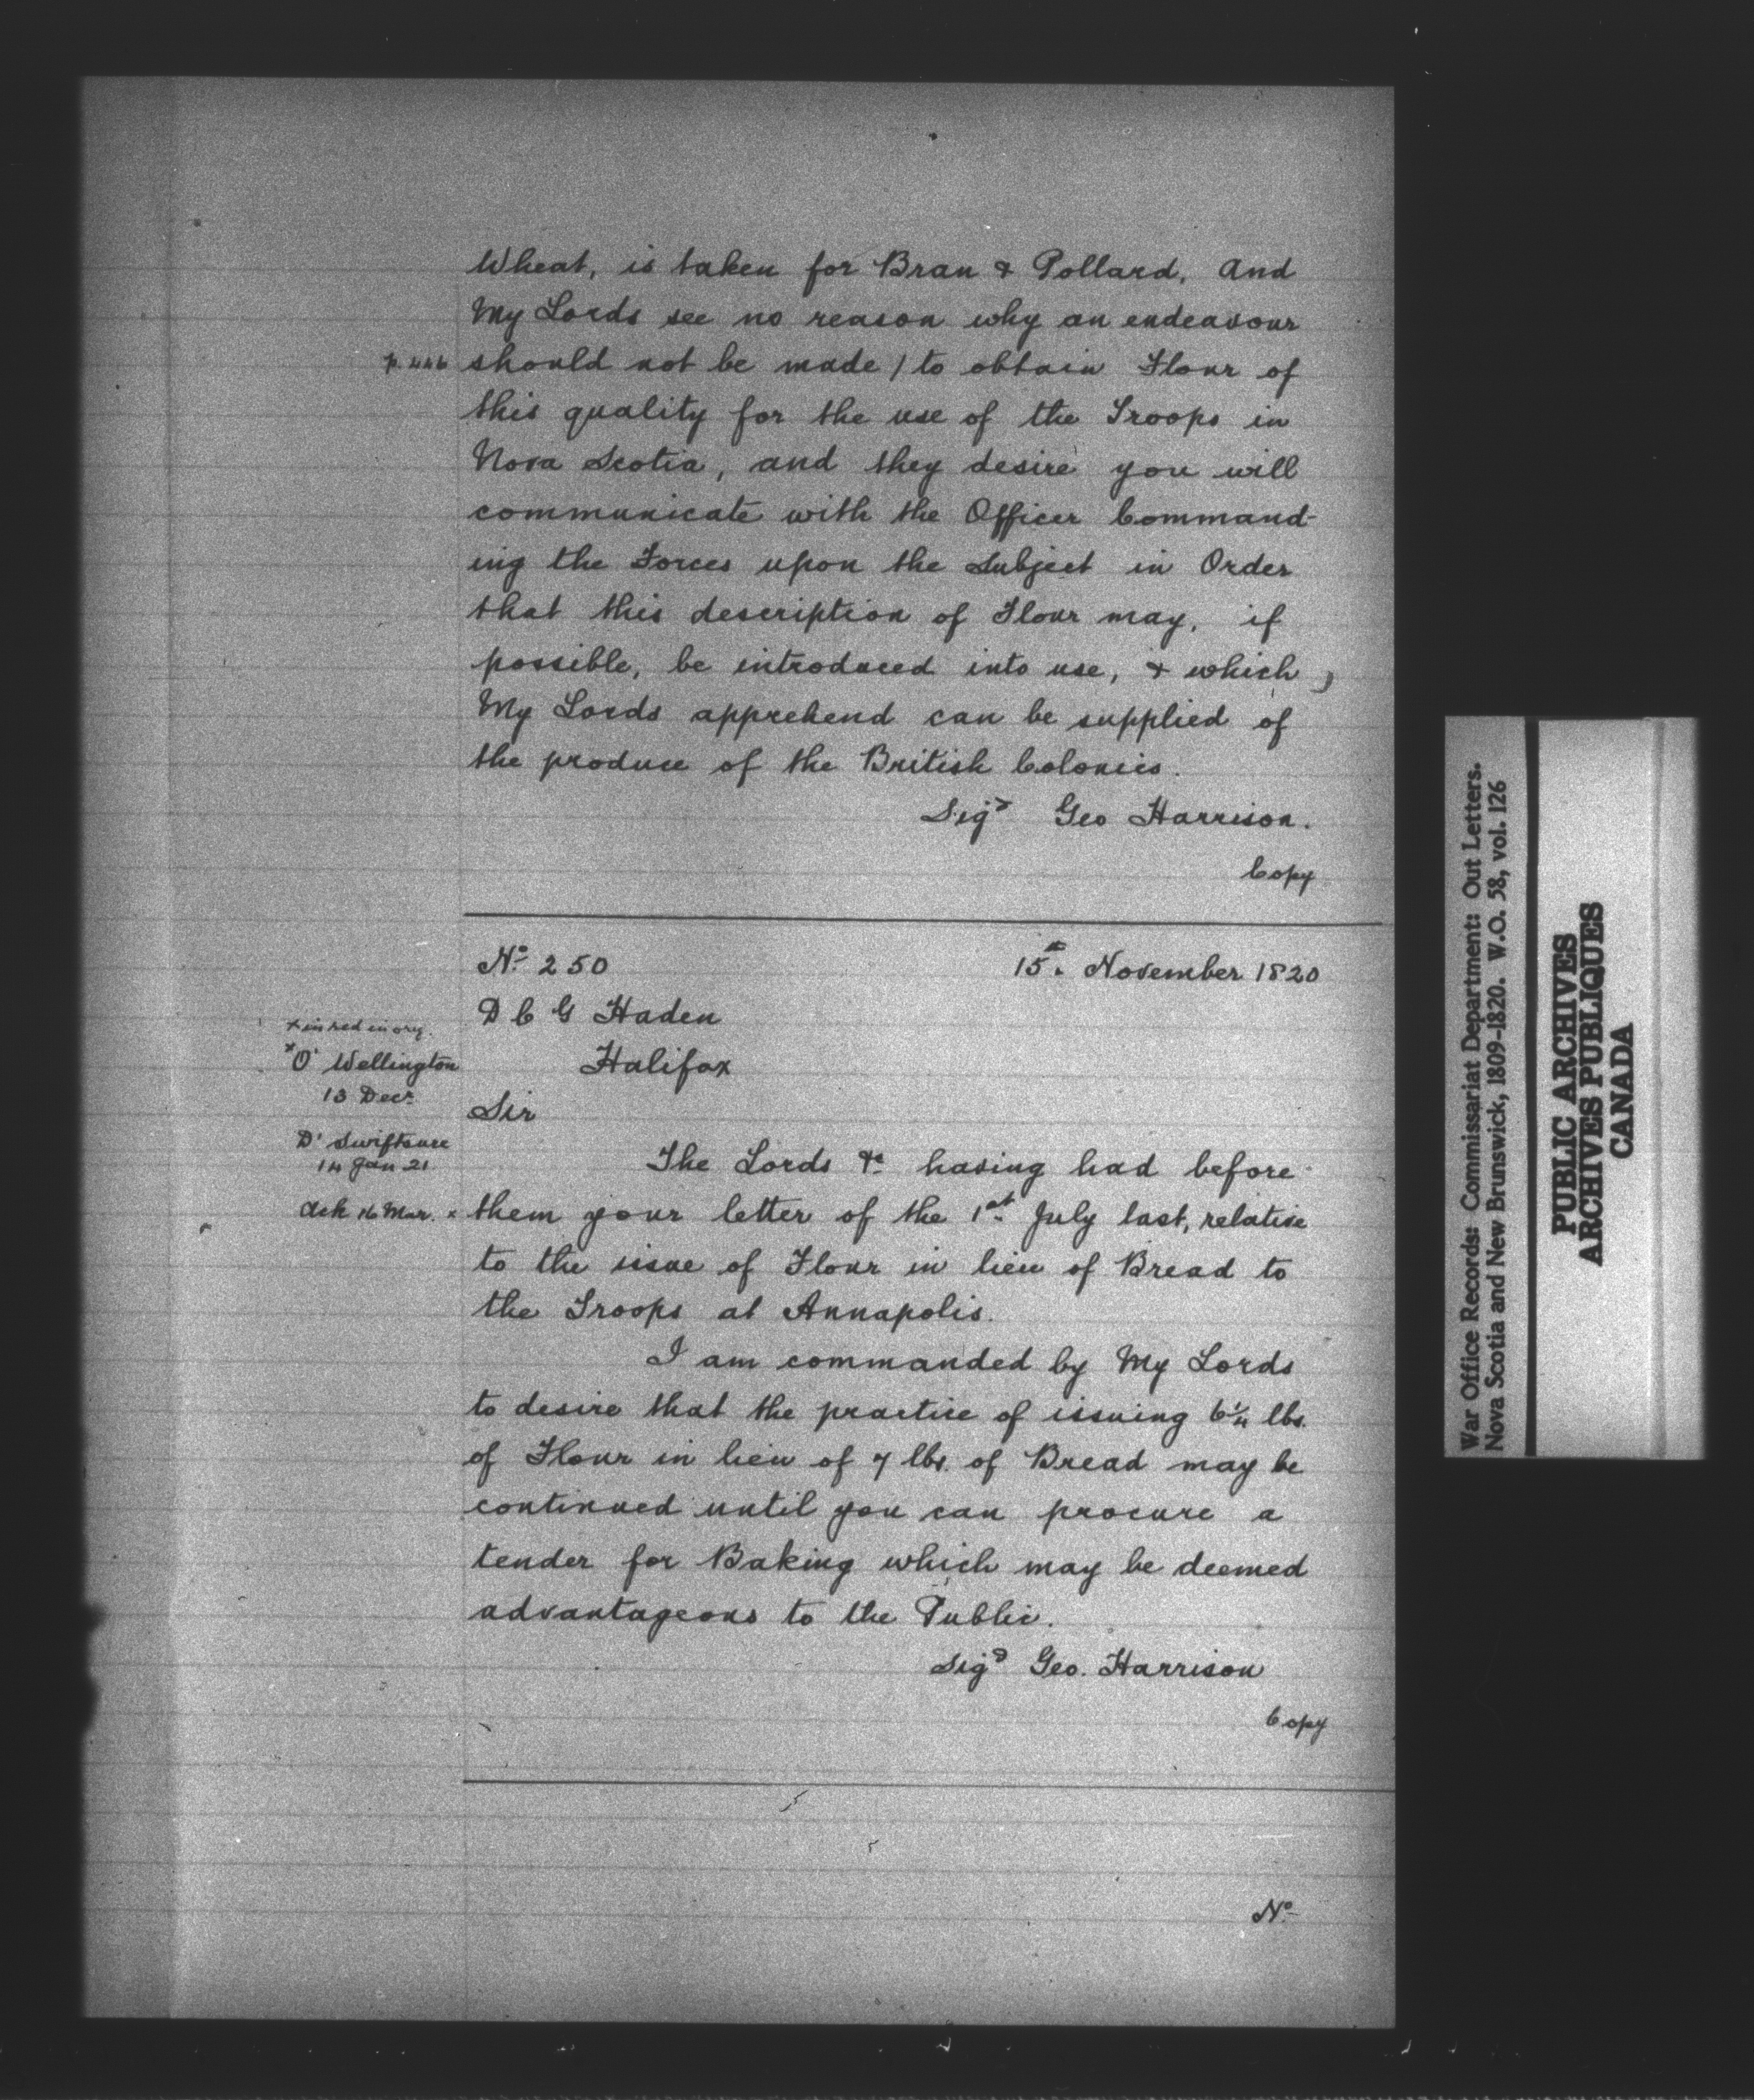 Wheat, is taken for Bran & Pollard, And
My Lords see no reason why an endeavour
p. 446 should not be made / to obtain Flour of
this quality for the use of the Troops in
Nova Scotia, and they desire you will
communicate with the Officer Command-
ing the Forces upon the Subject in Order
that this description of Flour may, if
possible, be introduced into use, & which,
My Lords apprehend can be supplied of
the produce of the British Colonies.
Sigd Geo Harrison.
Copy
No 250 15th November 1820
D C G Haden
Halifax
x in red in org.
x O' Wellington
13 Decr
D' Swiftsure
14 Jan 21
Ack 16 Mar. x
Sir
The Lords &c having had before
them your letter of the 1st July last, relative
to the issue of Flour in lieu of Bread to
the Troops at Annapolis.
I am commanded by My Lords
to desire that the practice of issuing 6 1/4 lbs.
of Flour in lieu of 7 lbs. of Bread may be
continued until you can procure a
tender for Baking which may be deemed
advantageous to the Public.
Sigd Geo. Harrison
Copy
No
War Office Records: Commissariat Department: Out Letters.
Nova Scotia and New Brunswick, 1809-1820. W.O. 58, vol. 126
PUBLIC ARCHIVES
ARCHIVES PUBLIQUES
CANADA